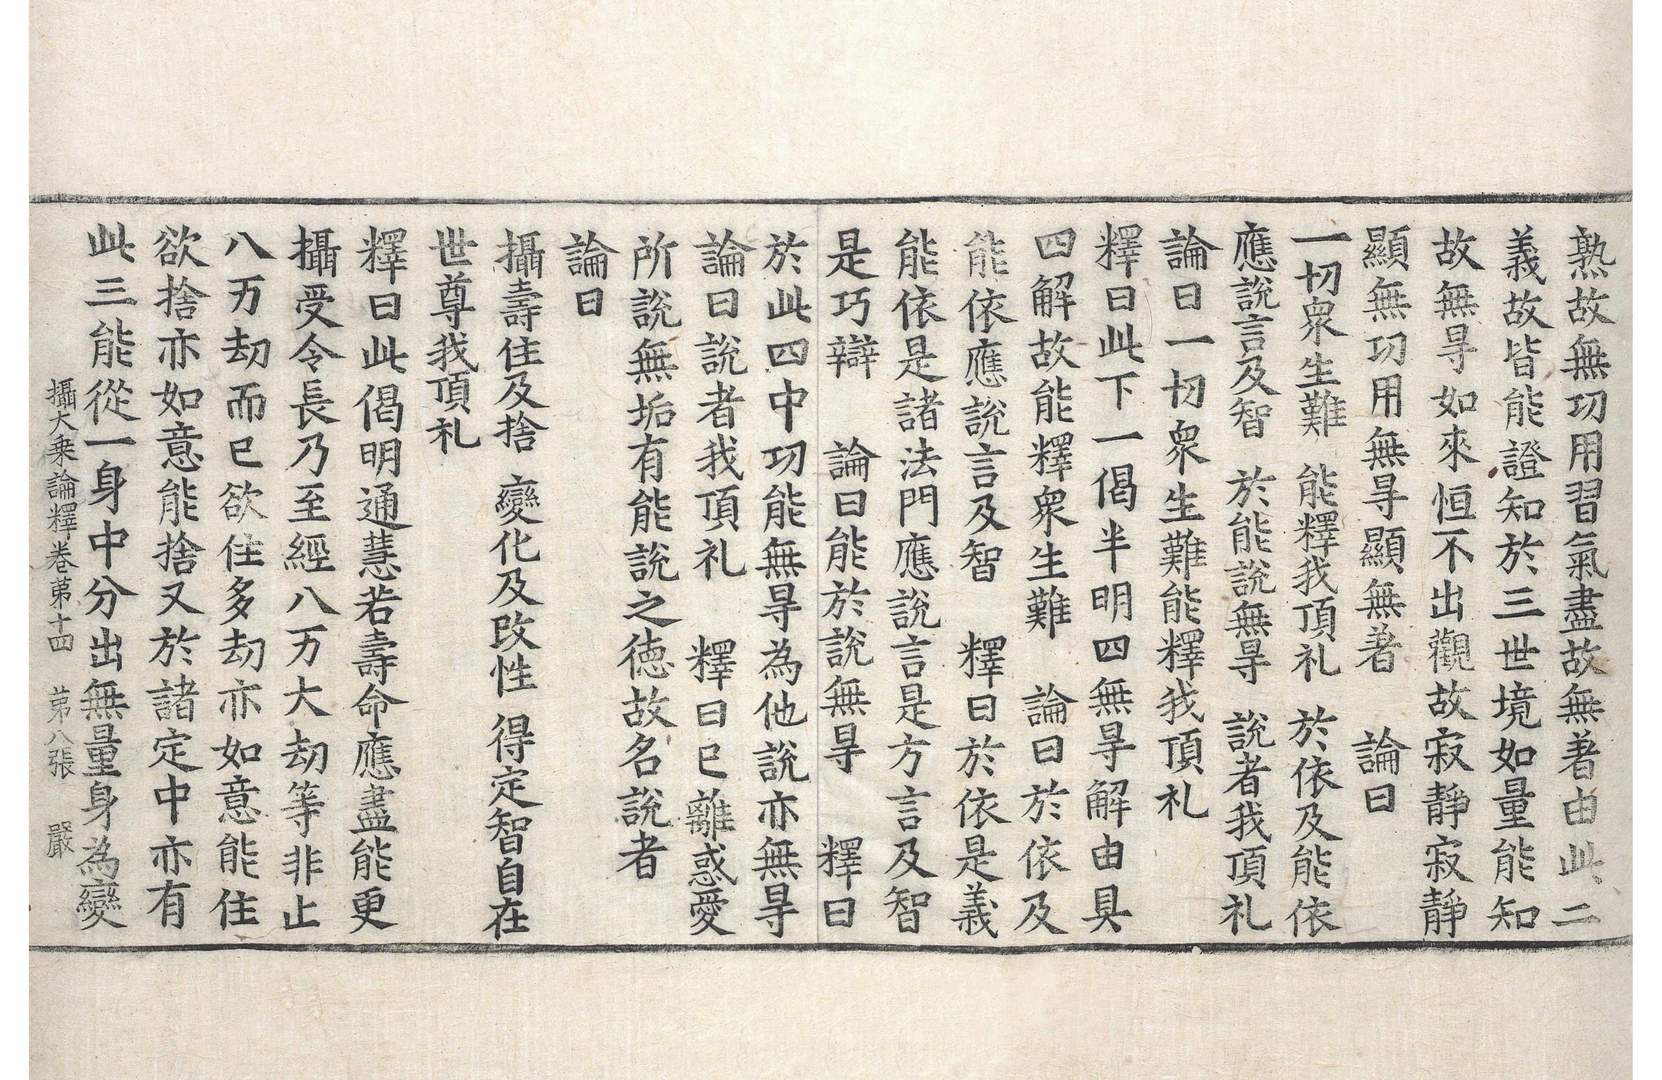 熟故無功用習氣盡故無著由此二
義故皆能證知於三世境如量能知
故無㝵如來恒不出觀故寂靜寂靜
顯無功用無㝵顯無著　論曰
一切衆生難　能釋我頂礼　於依及能依
應說言及智　於能說無㝵　說者我頂礼
論曰一切衆生難能釋我頂礼
釋曰此下一偈半明四無㝵解由具
四解故能釋衆生難　論曰於依及
能依應說言及智　釋曰於依是義
能依是諸法門應說言是方言及智
是巧辯　論曰能於說無㝵　釋曰
於此四中功能無㝵為他說亦無㝵
論曰說者我頂礼　釋曰已離惑愛
所說無垢有能說之德故名說者
論曰
攝壽住及捨　變化及改性　得定智自在
世尊我頂礼
釋曰此偈明通慧若壽命應盡能更
攝受令長乃至經八万大劫等非止
八万劫而已欲住多劫亦如意能住
欲捨亦如意能捨又於諸定中亦有
此三能從一身中分出無量身為變
攝大乘論釋卷苐十四　苐八張　嚴